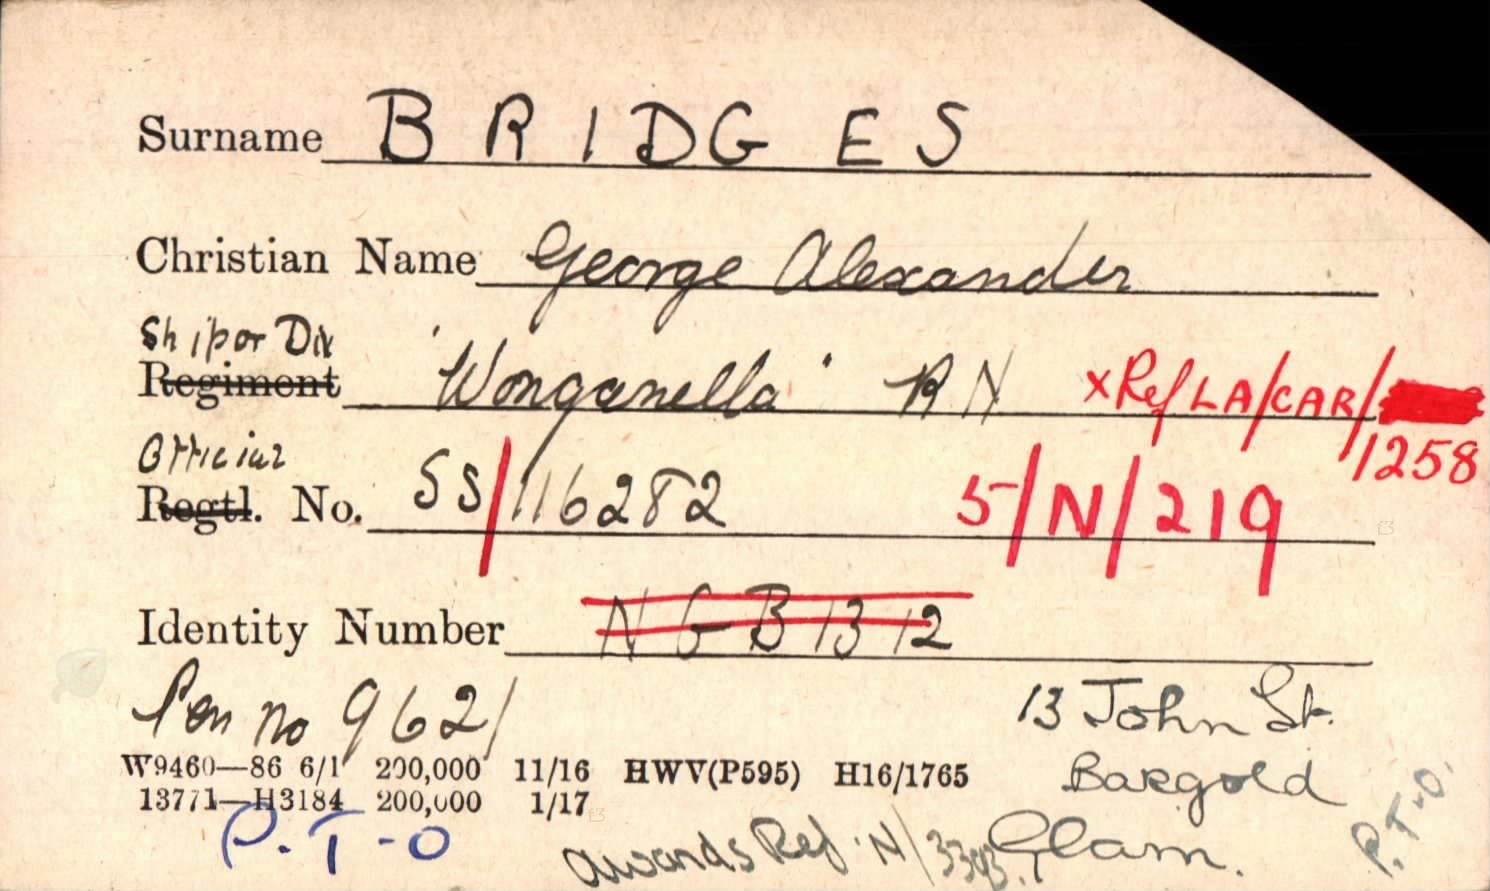 Surname BRIDGES
Christian Name George Alexander
Ship or Div
Regiment 'Wonganella' RN xRef LA/CAR/
1258
Official
Regtl. No. SS/116282 5/N/219
Identity Number NGB1312
Pen no 9621 13 John St.
Bargold
W9460—86 6/1 200,000 11/16 HWV(P595) H16/1765
13771—H3184 200,000 1/17
P.T-O awards Ref. N/3393. Glam. P.T-O.